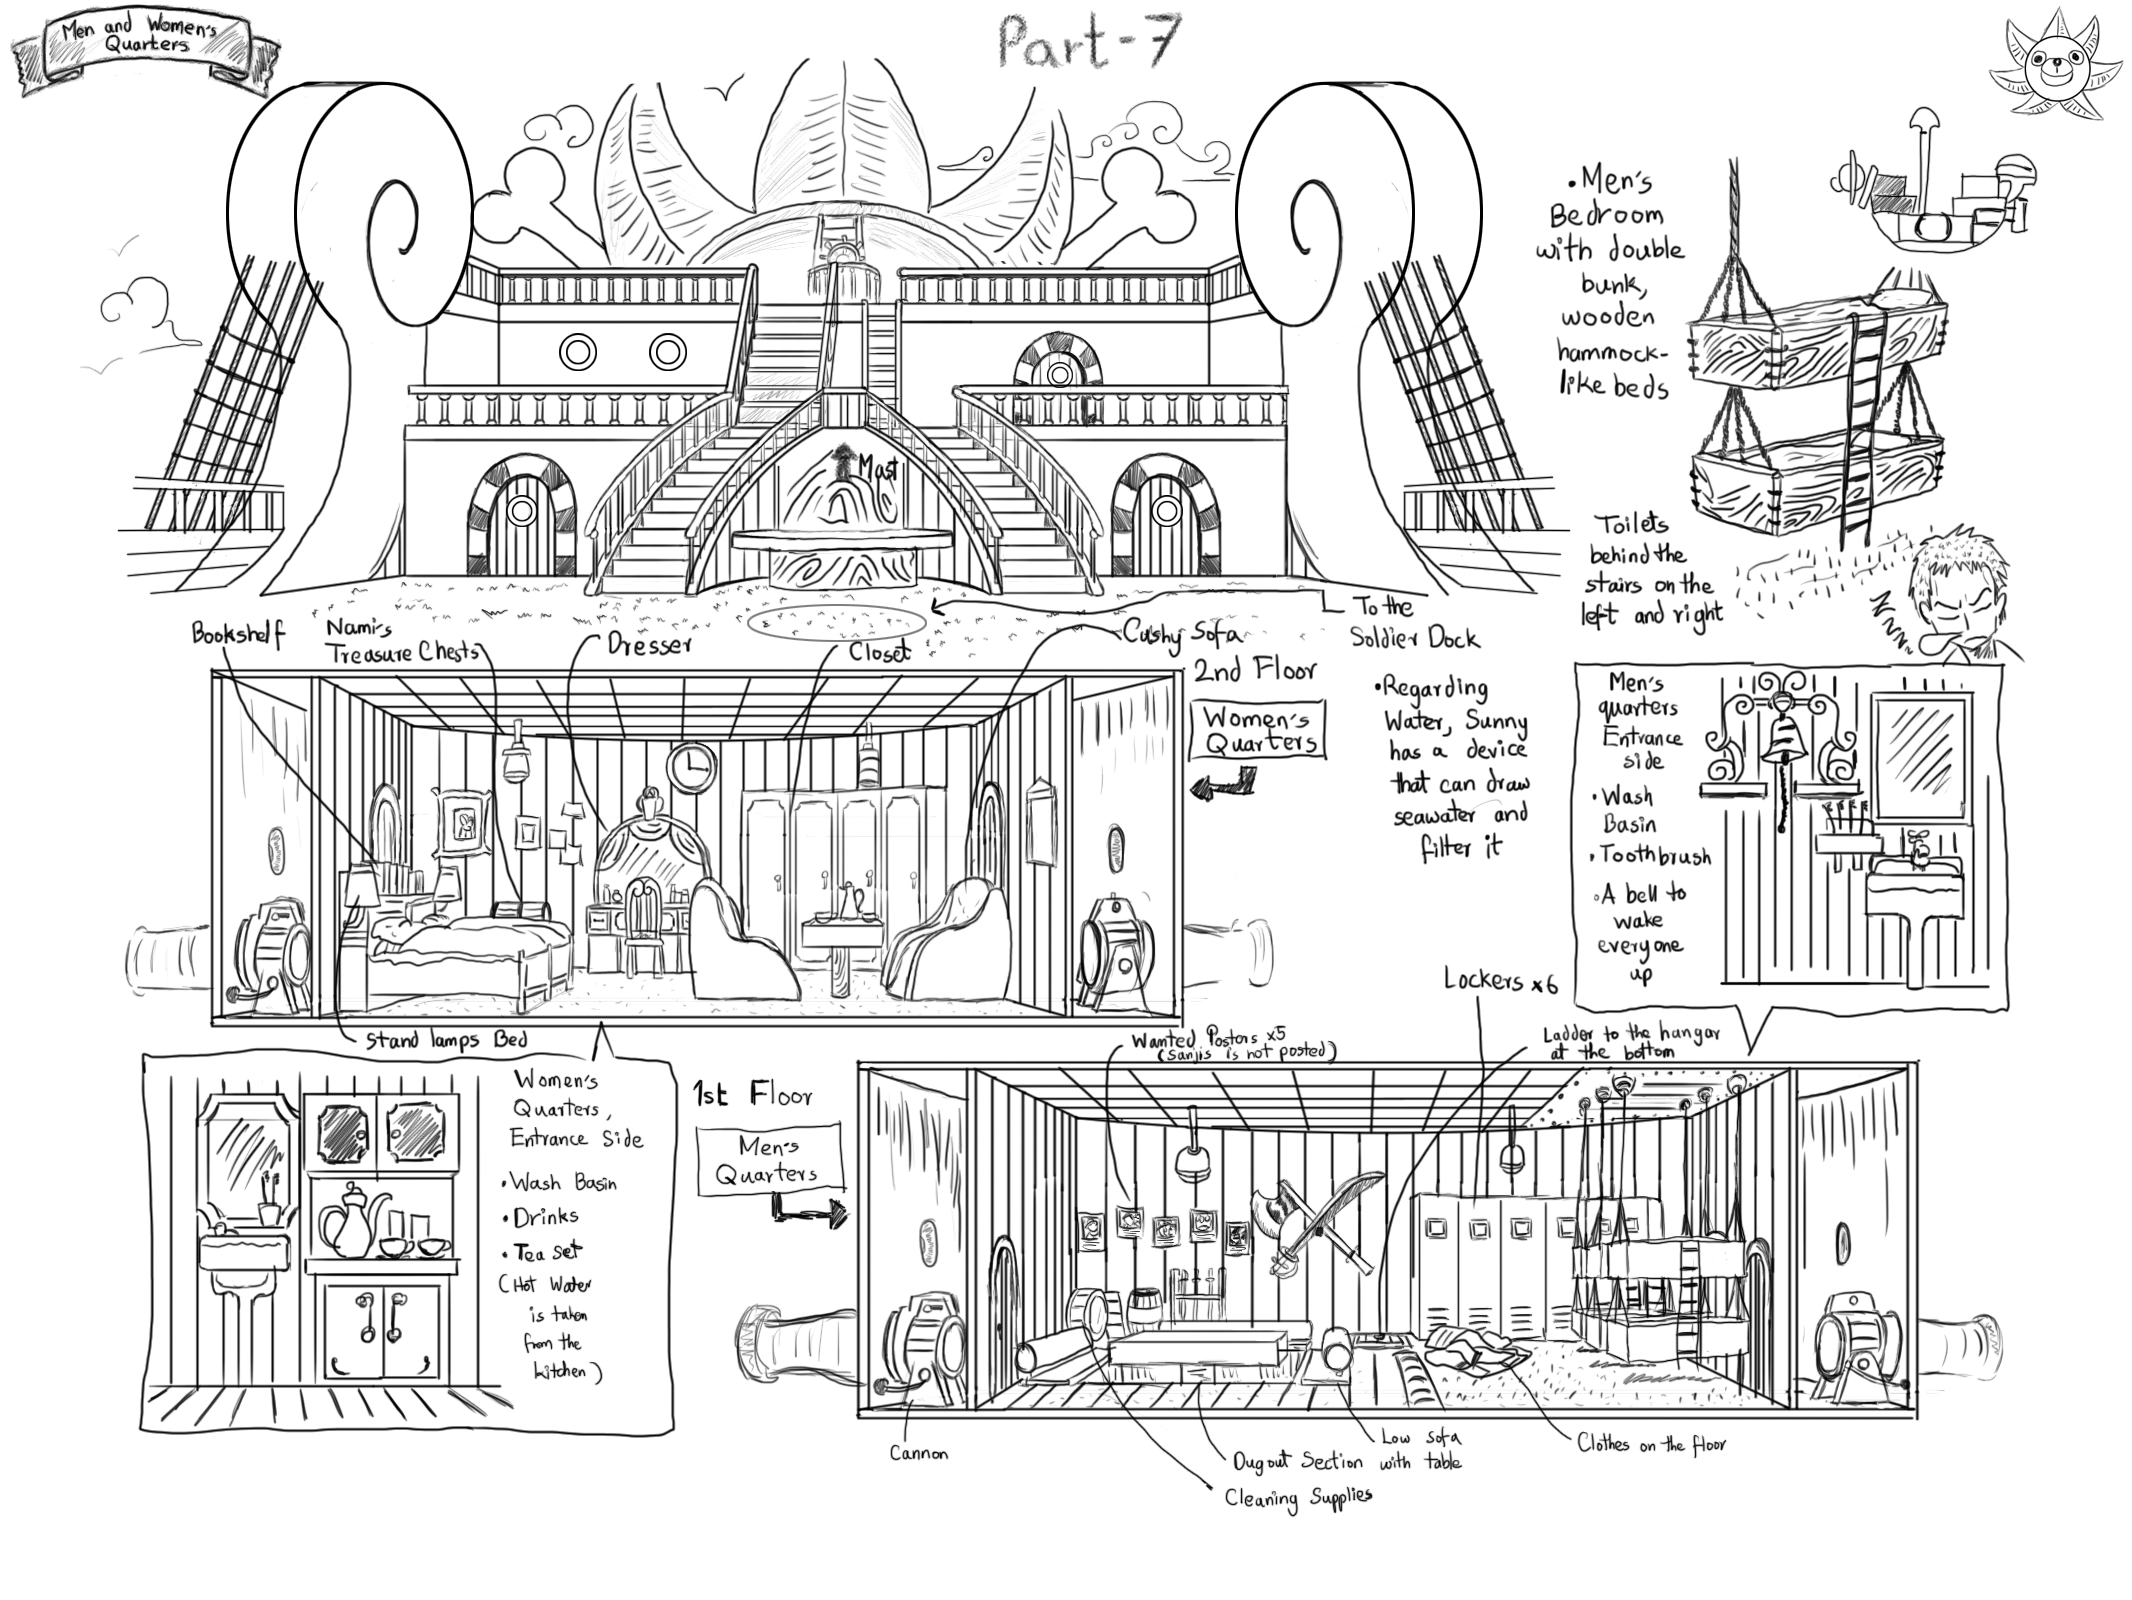 Men and Women's
Quarters
Part-7
•Men's
Bedroom
with double
bunk,
wooden
hammock-
like beds
Mast
Toilets
behind the
stairs on the
left and right
To the
Soldier Dock
Bookshelf
Nami's
Treasure Chests
Dresser
Closet
Cushy Sofa
2nd Floor
Women's
Quarters
•Regarding
Water, Sunny
has a device
that can draw
seawater and
filter it
Men's
quarters
Entrance
side
•Wash
Basin
•Toothbrush
•A bell to
wake
everyone
up
Stand lamps Bed
Women's
Quarters,
Entrance Side
•Wash Basin
•Drinks
•Tea set
(Hot Water
is taken
from the
kitchen)
1st Floor
Men's
Quarters
Wanted Postors x5
(Sanjis is not posted)
Lockers x6
Ladder to the hangar
at the bottom
Cannon
Dugout Section
Low sofa
with table
Clothes on the floor
Cleaning Supplies